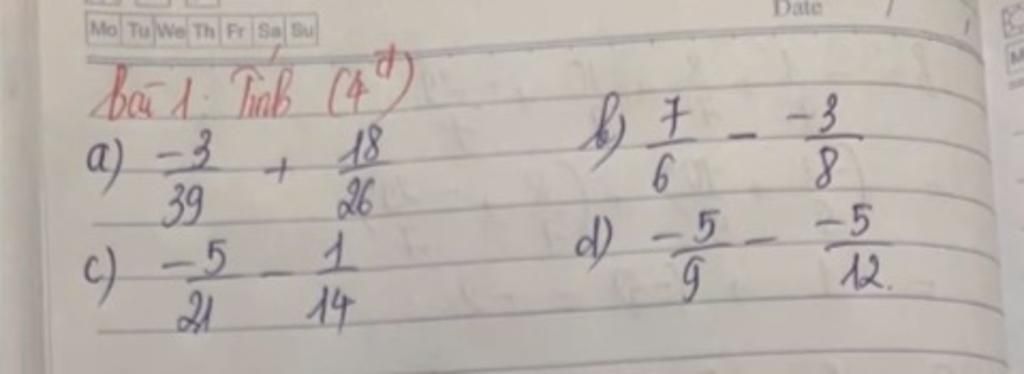 Date
Mo Tu We Th Fr Sa Su
Bài 1: Tính (4đ)
a) -3/39 + 18/26 b) 7/6 - -3/8
c) -5/21 - 1/14 d) -5/9 - -5/12.